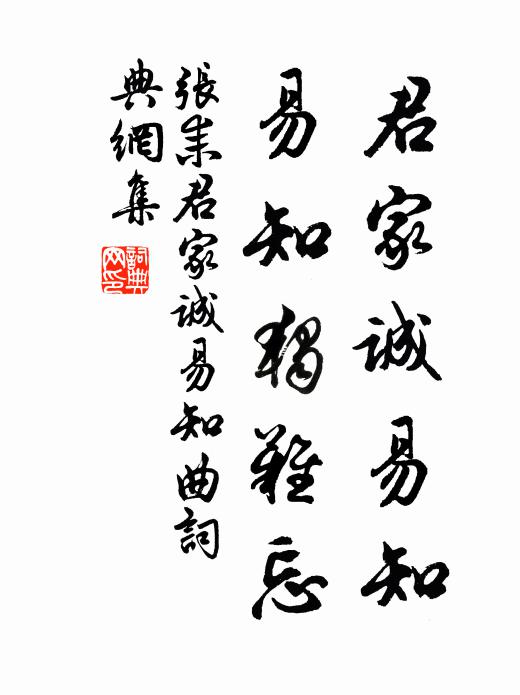 君家誠易知
易知獨難忘
張耒君家誠易知曲詞
典網集
詞典網印